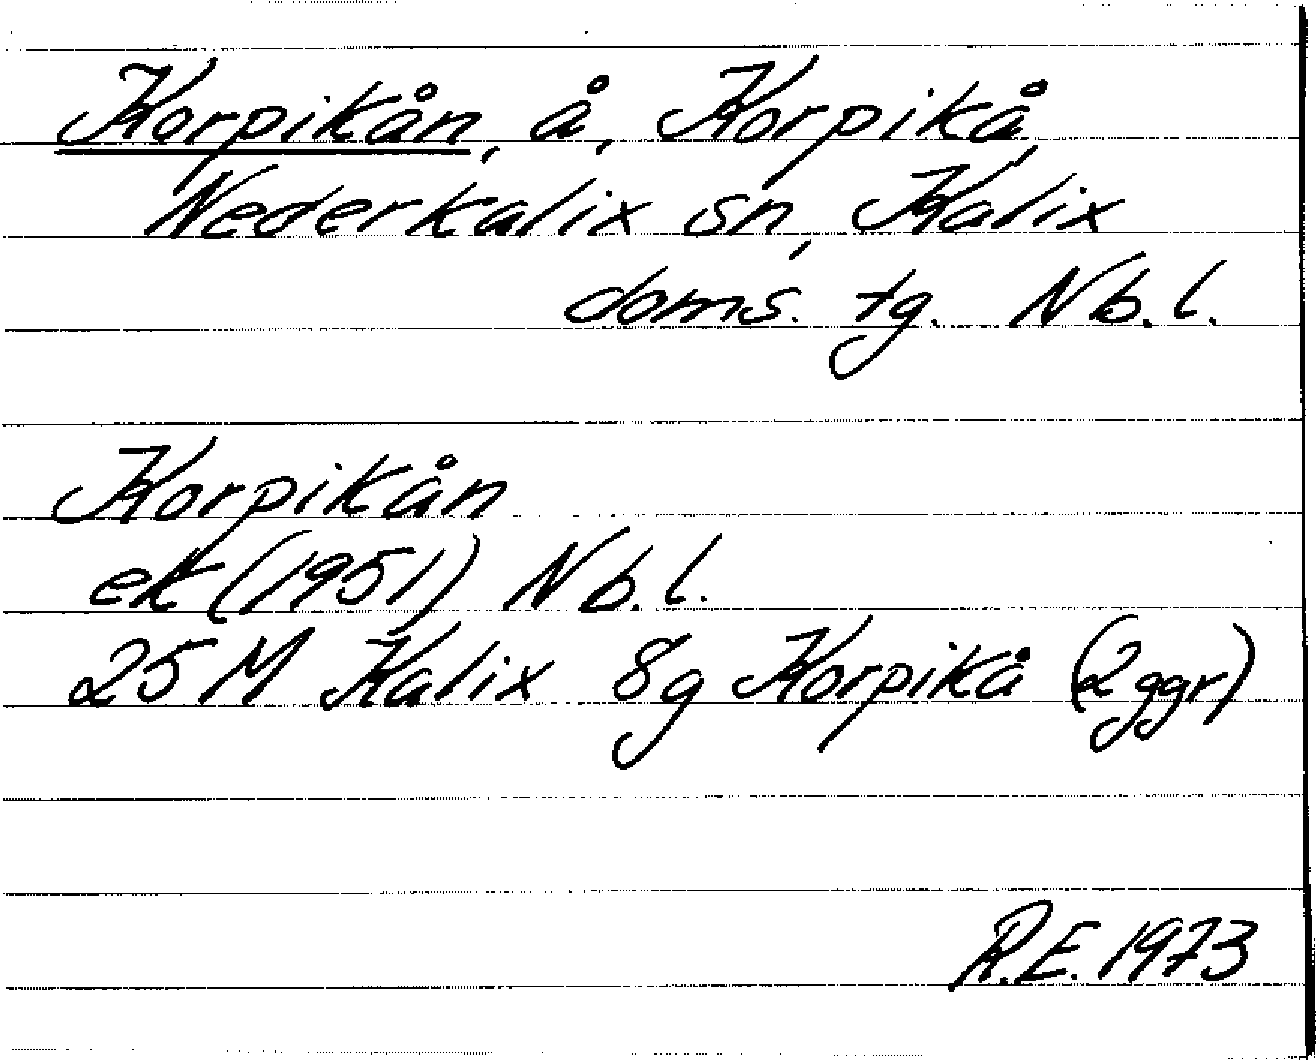 Korpikån, å, Korpikå,
Nederkalix sn, Kalix
doms. tg. Nb.l.
Korpikån
ek (1951) Nb.l.
25 M Kalix 8g Korpikå (2 ggr)
R.E. 1973